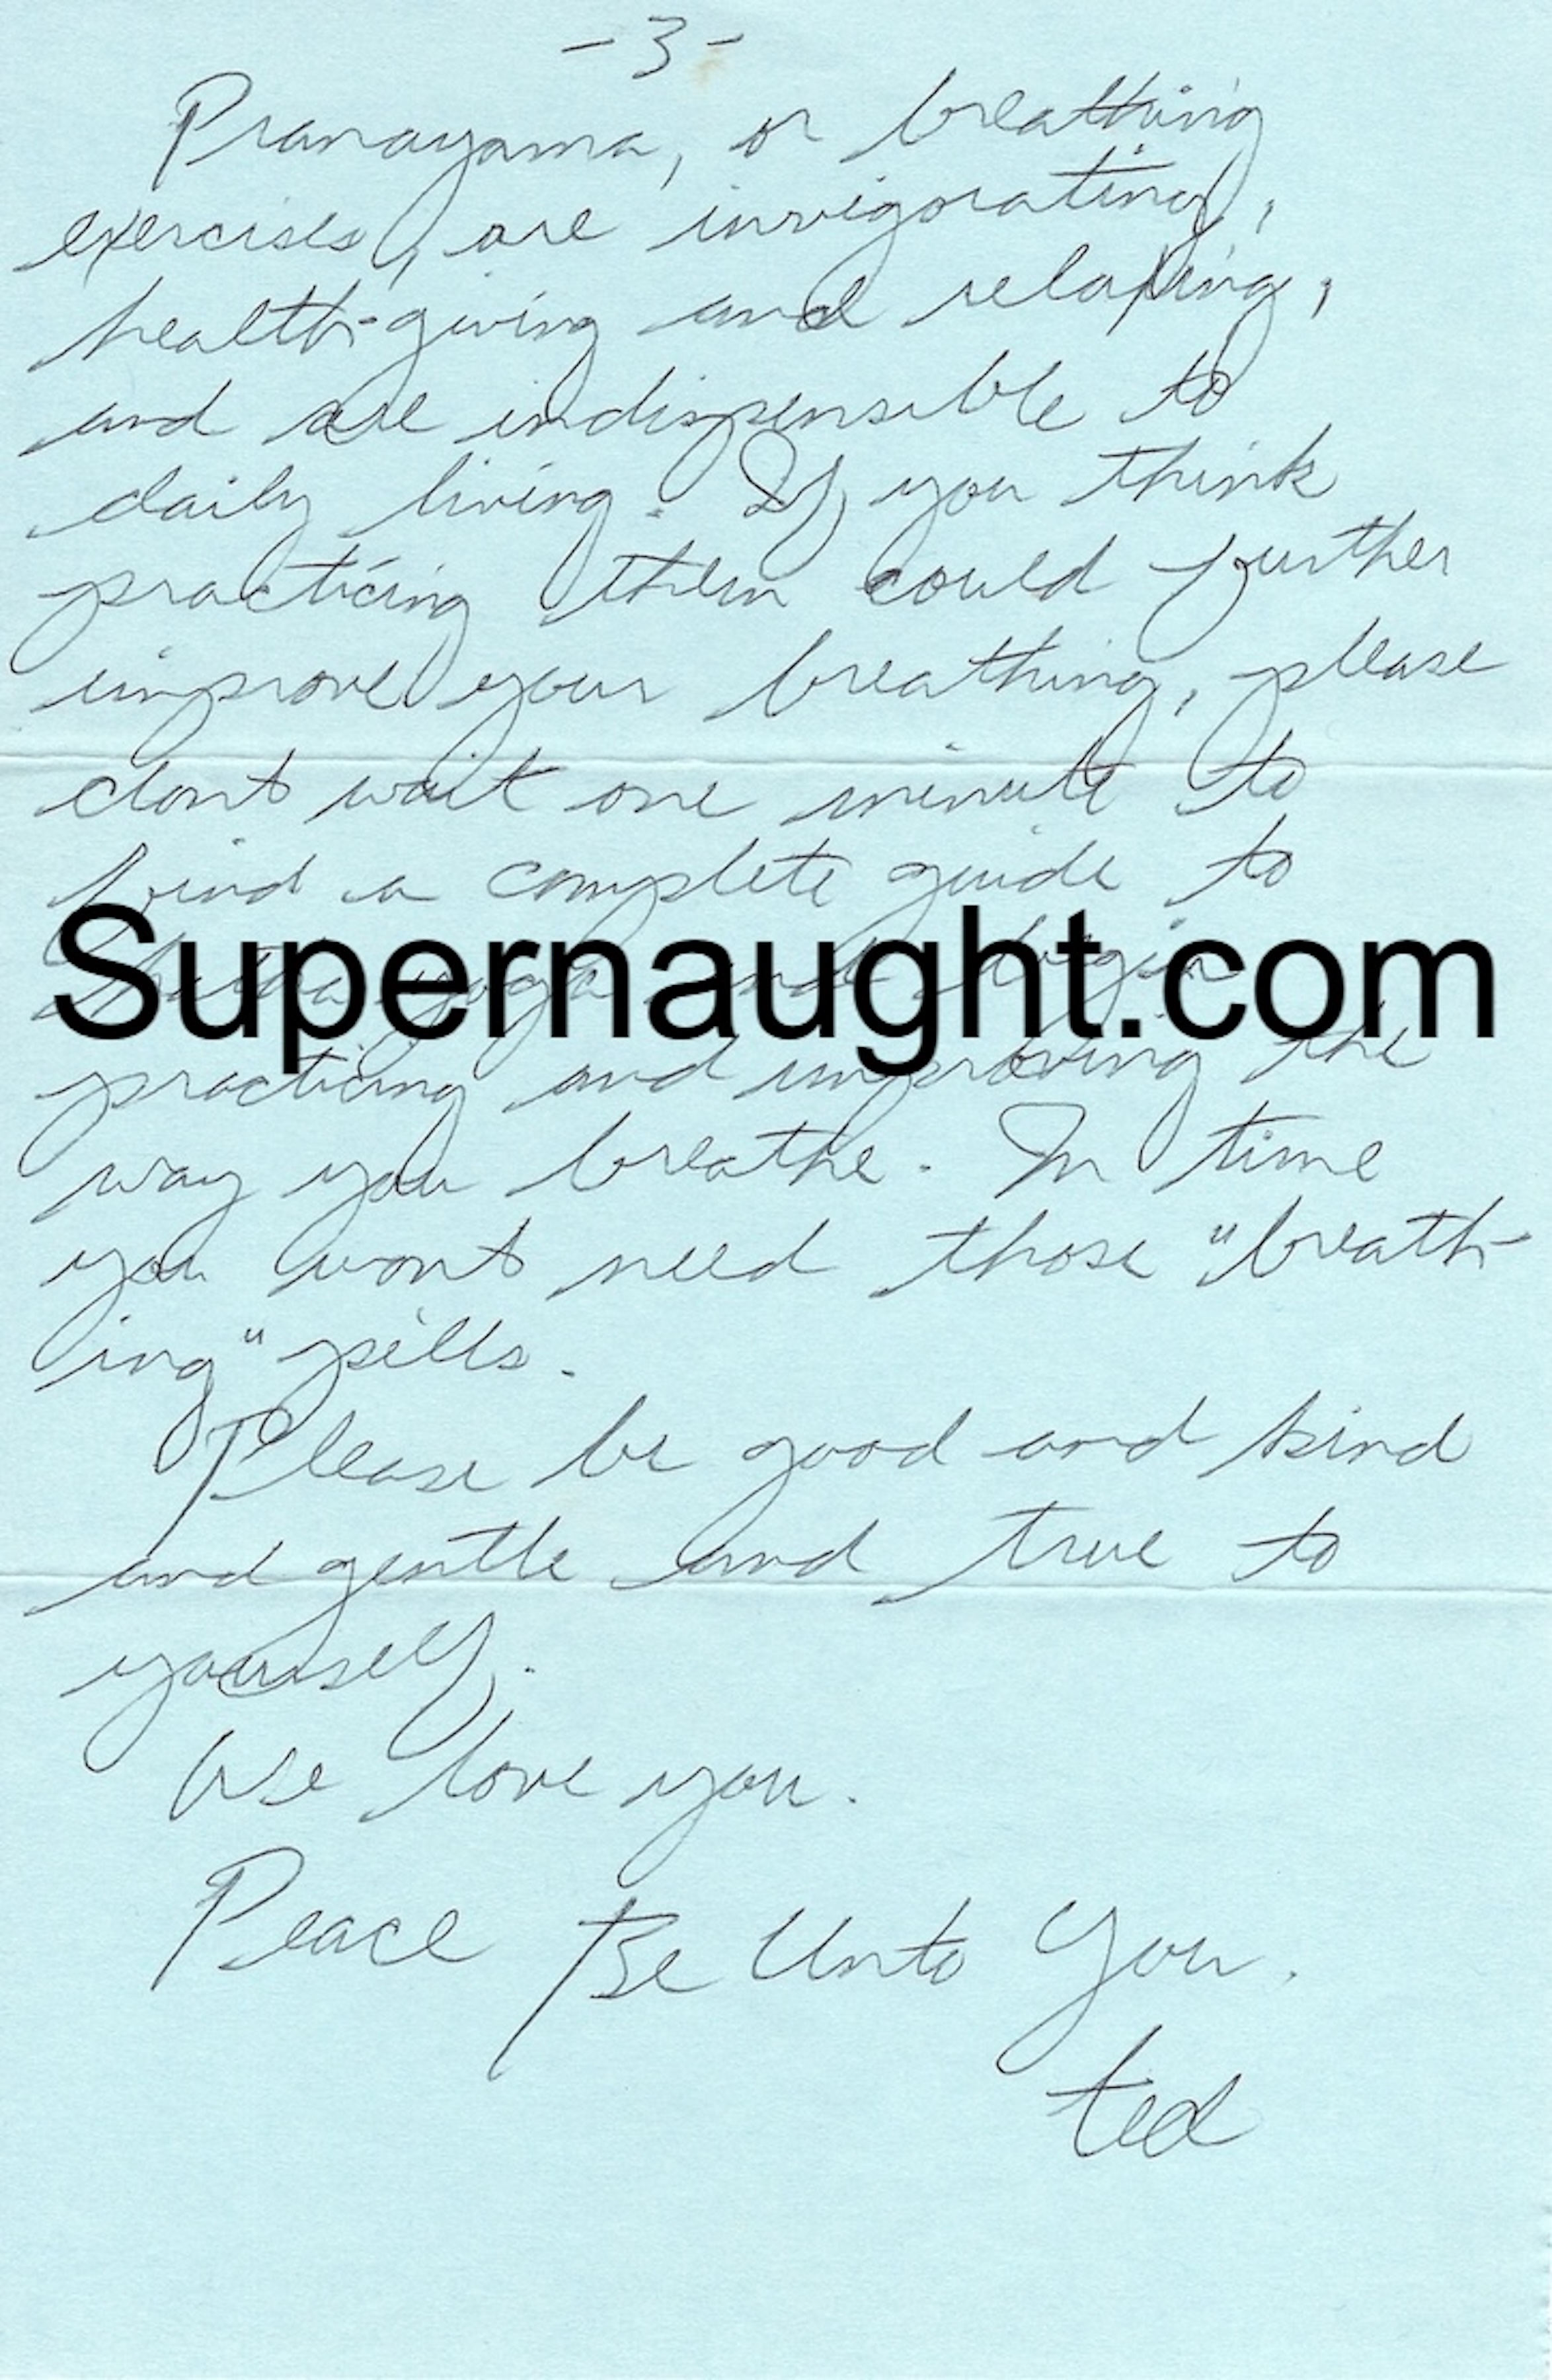 -3-
Pranayama, or breathing
exercises, are invigorating,
health-giving and relaxing,
and are indispensible to
daily living. If you think
practicing them could further
improve your breathing, please
dont wait one minute to
find a complete guide to
hatha yoga and begin
Supernaught.com
practicing and improving the
way you breathe. In time
you wont need those "breath-
ing" pills.
Please be good and kind
and gentle and true to
yourself.
We love you.
Peace Be Unto You.
ted